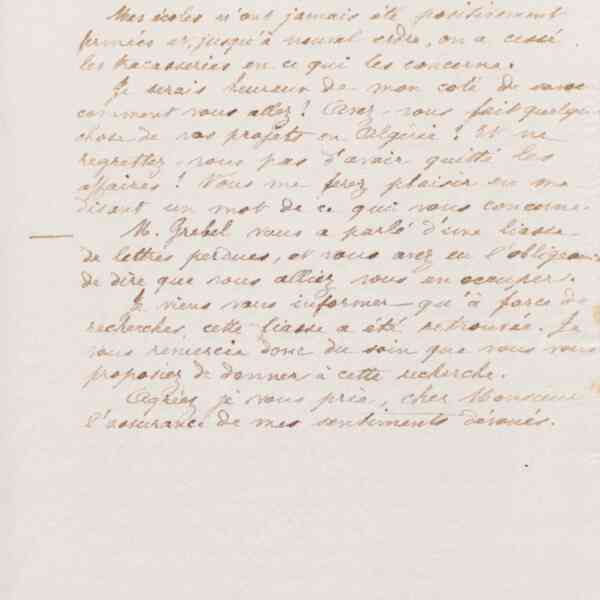 Mes écoles n'ont jamais été positivement
fermées et, jusqu'à nouvel ordre, on a cessé
les tracasseries en ce qui les concerne.
Je serais heureux de mon coté de savoir
comment vous allez? Avez-vous fait quelque
chose de vos projets en Algérie? Et ne
regrettez-vous pas d'avoir quitté les
affaires? Vous me ferez plaisir en me
disant un mot de ce qui vous concerne.
M. Grebel vous a parlé d'une liasse
de lettres perdues, et vous avez eu l'obligeance
de dire que vous alliez vous en occuper.
Je viens vous informer qu'à force de
recherches cette liasse a été retrouvée. Je
vous remercie donc du soin que vous vous
proposiez de donner à cette recherche.
Agréez je vous prie, cher Monsieur
l'assurance de mes sentiments dévoués.